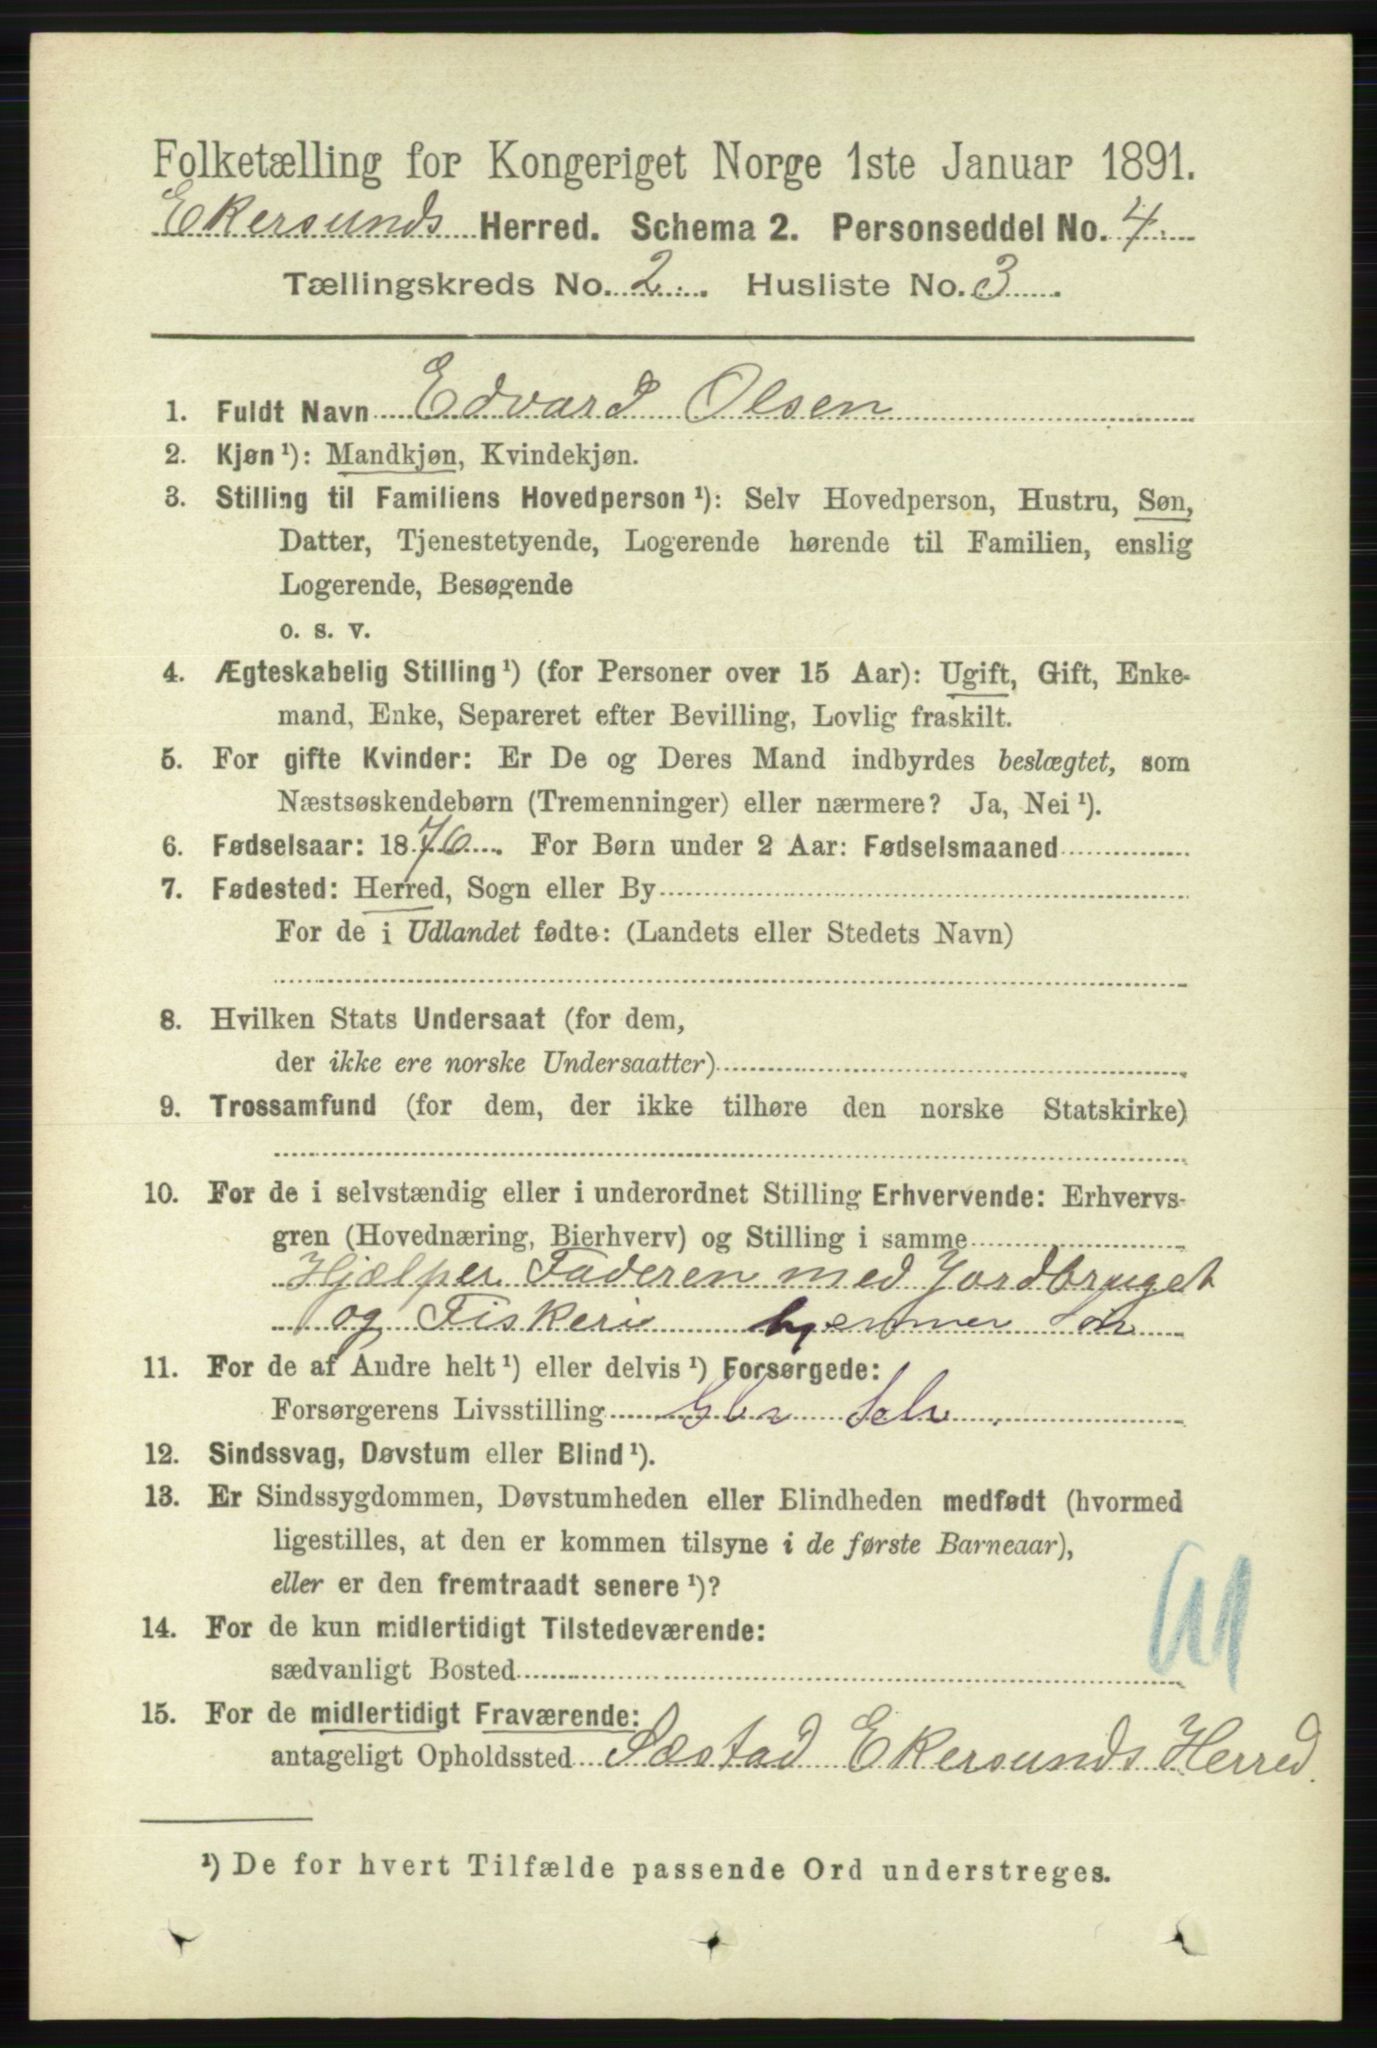 Folketælling for Kongeriget Norge 1ste Januar 1891.
Ekersunds Herred. Schema 2. Personseddel No. 4.
Tællingskreds No. 2. Husliste No. 3.
1. Fuldt Navn Edvard Olsen
2. Kjøn¹): Mandkjøn, Kvindekjøn.
3. Stilling til Familiens Hovedperson¹): Selv Hovedperson, Hustru, Søn,
Datter, Tjenestetyende, Logerende hørende til Familien, enslig
Logerende, Besøgende
o. s. v.
4. Ægteskabelig Stilling¹) (for Personer over 15 Aar): Ugift, Gift, Enke-
mand, Enke, Separeret efter Bevilling, Lovlig fraskilt.
5. For gifte Kvinder: Er De og Deres Mand indbyrdes beslægtet, som
Næstsøskendebørn (Tremenninger) eller nærmere? Ja, Nei¹).
6. Fødselsaar: 1876. For Børn under 2 Aar: Fødselsmaaned
7. Fødested: Herred, Sogn eller By
For de i Udlandet fødte: (Landets eller Stedets Navn)
8. Hvilken Stats Undersaat (for dem,
der ikke ere norske Undersaatter)
9. Trossamfund (for dem, der ikke tilhøre den norske Statskirke)
10. For de i selvstændig eller i underordnet Stilling Erhvervende: Erhvervs-
gren (Hovednæring, Bierhverv) og Stilling i samme
Hjælper Faderen med Jordbruget
og Fiskeri hjemmev Søn
11. For de af Andre helt¹) eller delvis¹) Forsørgede:
Forsørgerens Livsstilling Gbr Selv
12. Sindssvag, Døvstum eller Blind¹).
13. Er Sindssygdommen, Døvstumheden eller Blindheden medfødt (hvormed
ligestilles, at den er kommen tilsyne i de første Barneaar),
eller er den fremtraadt senere¹)?
14. For de kun midlertidigt Tilstedeværende:
sædvanligt Bosted
15. For de midlertidigt Fraværende:
antageligt Opholdssted Sæstad Ekersunds Herred.
¹) De for hvert Tilfælde passende Ord understreges.